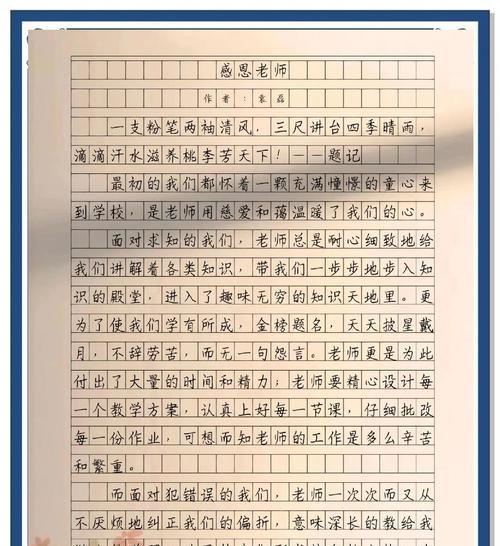 感恩老师
作者：袁磊
一支粉笔两袖清风，三尺讲台四季晴雨，
滴滴汗水滋养桃李芳天下！——题记
最初的我们都怀着一颗充满憧憬的童心来
到学校，是老师用慈爱和蔼温暖了我们的心。
面对求知的我们，老师总是耐心细致地给
我们讲解着各类知识，带我们一步步地步入知
识的殿堂，进入了趣味无穷的知识天地里。更
为了使我们学有所成，金榜题名，天天披星戴
月，不辞劳苦，而无一句怨言。老师更是为此
付出了大量的时间和精力；老师要精心设计每
一个教学方案，认真上好每一节课，仔细批改
每一份作业，可想而知老师的工作是多么辛苦
和繁重。
而面对犯错误的我们，老师一次次而又从
不厌烦地纠正我们的偏折，意味深长的教给我